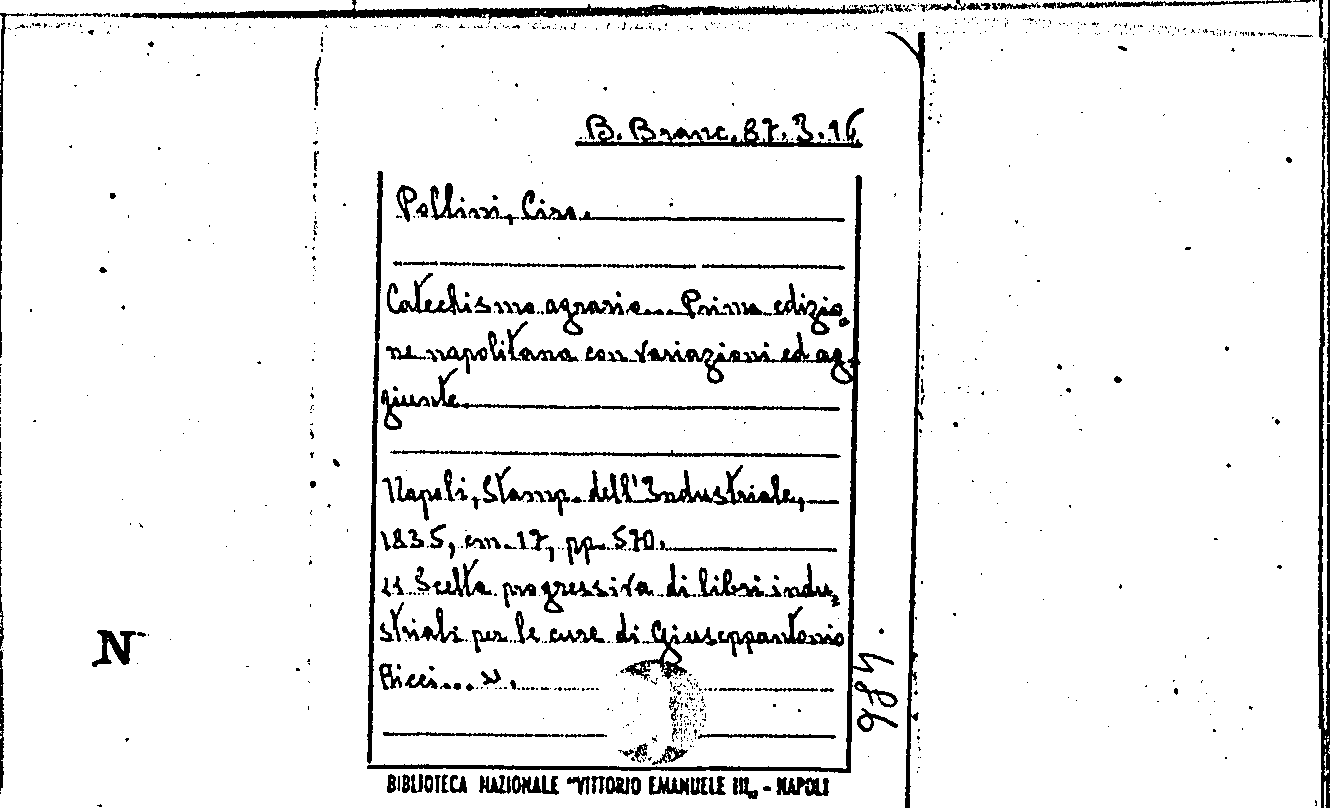 B. Branc. 87. 3. 16
Pollini, Ciro.
Catechismo agrario... Prima edizio=
ne napolitana con variazioni ed ag=
giunte.
Napoli, Stamp. dell'Industriale,
1835, cm. 17, pp. 570.
"Scelta progressiva di libri indu=
striali per le cure di Giuseppantonio
Ricci... ".
N
BIBLIOTECA NAZIONALE "VITTORIO EMANUELE III„ - NAPOLI